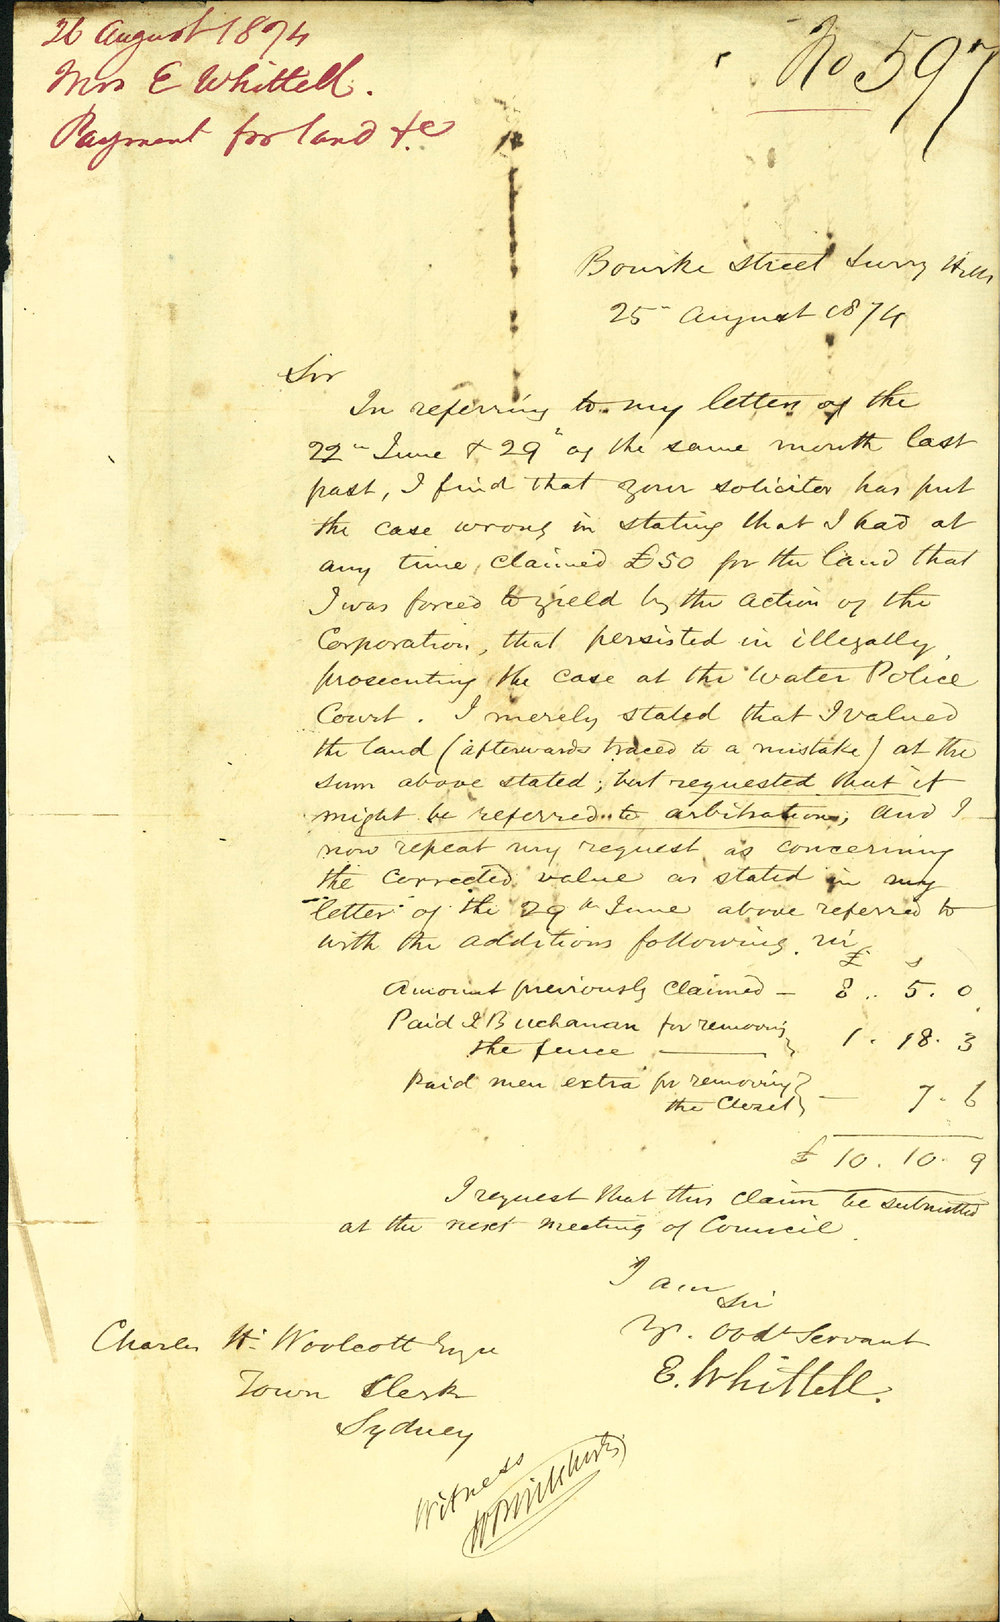 26 August 1874
Mrs E Whittell.
Payment for land &c
No 597
Bourke Street Surry Hills
25 August 1874
Sir
In referring to my letters of the
22n June & 29" of the same month last
past, I find that your solicitor has put
the case wrong in stating that I had at
any time claimed £50 for the land that
I was forced to yield by the action of the
Corporation, that persisted in illegally
prosecuting the case at the Water Police
Court. I merely stated that I valued
the land (afterwards traced to a mistake) at the
sum above stated; but requested that it
might be referred to arbitration; and I
now repeat my request as concerning
the corrected value as stated in my
letter of the 29th June above referred to
with the additions following. viz
£ s
Amount previously claimed – 8 .. 5 . 0
Paid J Buchanan for removing
the fence — 1 . 18 . 3
Paid men extra for removing
the Closet – 7 . 6
£ 10 . 10 . 9
I request that this claim be submitted
at the next meeting of Council.
I am
Sir
Yr. Obdt Servant
E. Whittell.
Charles H. Woolcott Esqre
Town Clerk
Sydney
Witness